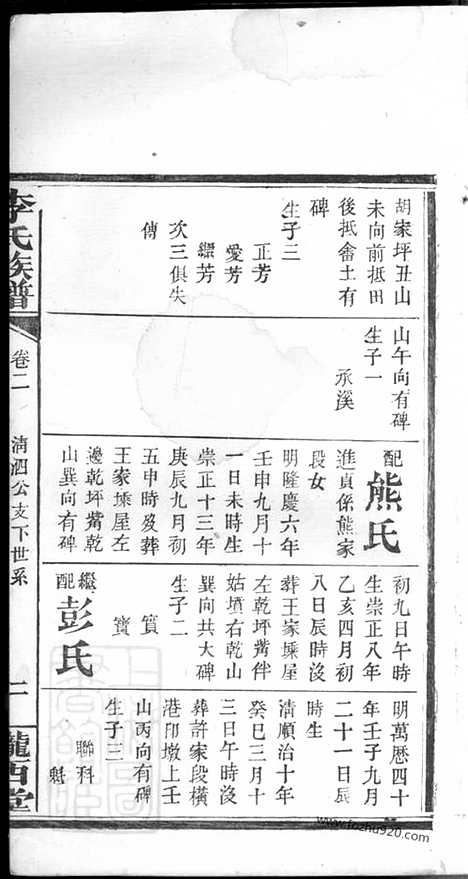 胡家坪丑山
未向前抵田
後抵畬土有
碑
生子三
正芳
愛芳
繼芳
次三俱失
傳
山午向有碑
生子一
承溪
配熊氏
進貞係熊家
段女
明隆慶六年
壬申九月十
一日未時生
崇正十三年
庚辰九月初
五申時歿葬
王家塅屋左
邊乾坪觜乾
山巽向有碑
初九日午時
生崇正八年
乙亥四月初
八日辰時沒
葬王家塅屋
左乾坪觜伴
姑墳右乾山
巽向共大碑
生子二
賓
寶
繼配彭氏
明萬曆四十
年壬子九月
二十一日辰
時生
清順治十年
癸巳三月十
三日午時沒
葬許家段橫
港印墩上壬
山丙向有碑
生子三
聯科
魁
李氏族譜
卷二
清泗公支下世系
隴西堂
www.fozhu920.com